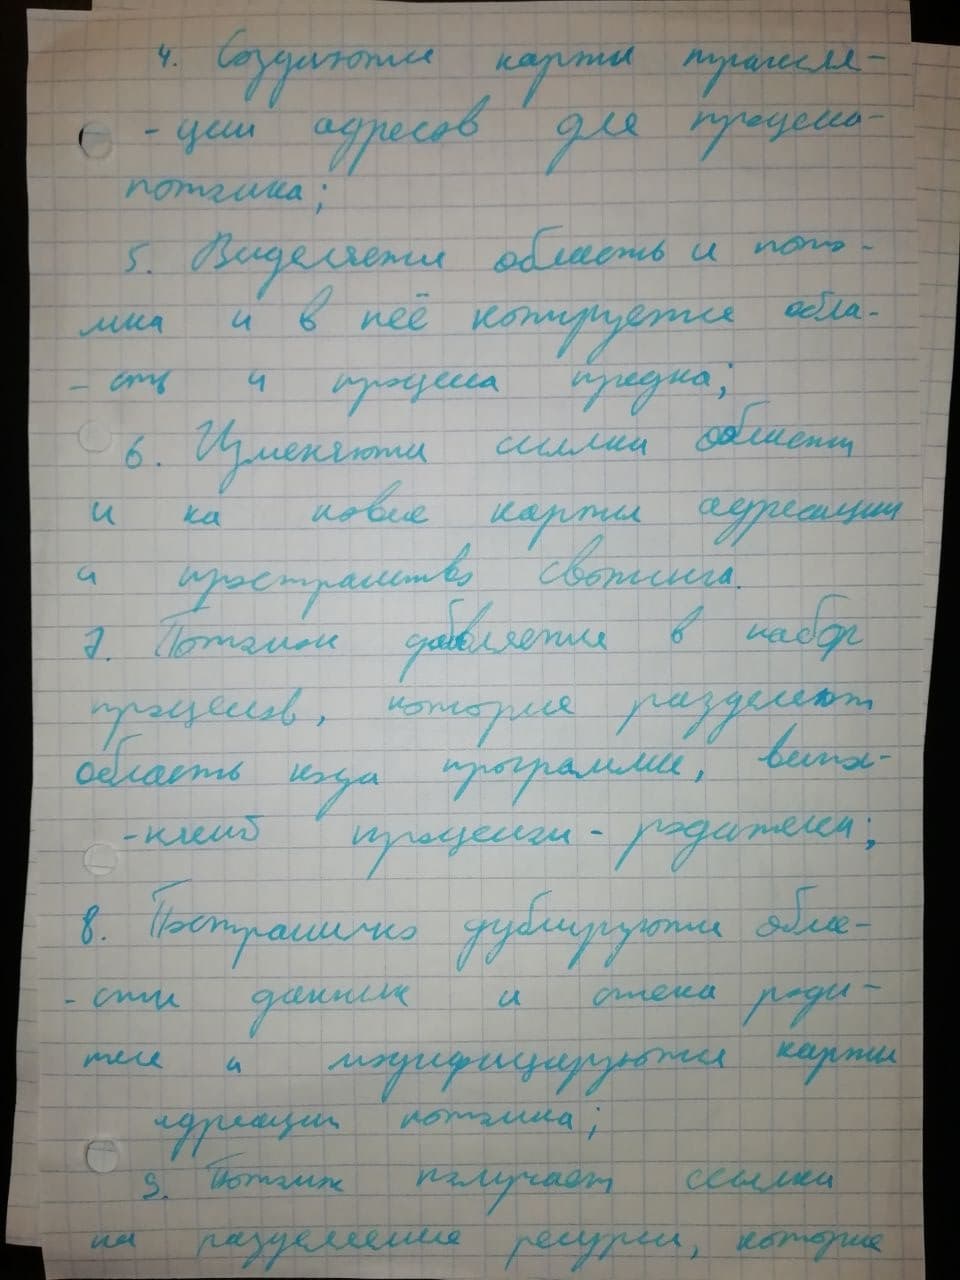 4. Создаются карты трансля-
-ции адресов для процесса-
потомка;
5. Виделяется область u пото-
мка и в неё копируется обла-
-сть u процесса предка;
6. Изменяются ссылки области
u на новые карты адресации
и пространство свопинга.
7. Потомок добвляется в набор
процессов, которые разделяют
область кода программы, выпол-
-няемой процессом-родителем;
8. Постранично дублируются обла-
-сти данных и стека роди-
теля и модифицируются карты
адресации потомка;
9. Потомок получает ссылки
на разделяемые ресурсы, которые